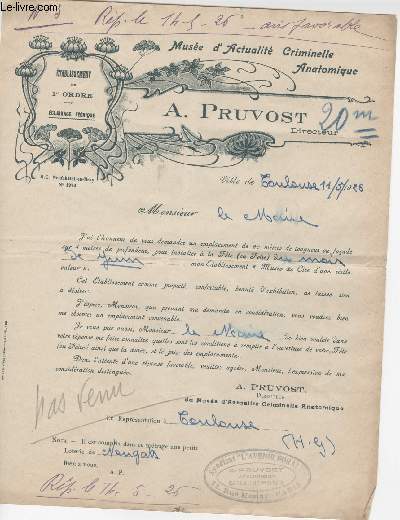 Rép. le 14-5-26 avis favorable
Musée d'Actualité Criminelle
Anatomique
ÉTABLISSEMENT
DE
1er ORDRE
ÉCLAIRAGE TECHNIQUE
A. PRUVOST
Directeur
20m
Ville de Toulouse 11/5/1926
Monsieur le Maire
J'ai l'honneur de vous demander un emplacement de 20 mètres de longueur de façade
sur 4 mètres de profondeur, pour installer à la Fête (ou Foire) du mois
de Juin mon Etablissement « Musée de Cire d'une réelle
valeur ».
Cet Etablissement comme propreté, confortable, beauté d'exhibition, ne laisse rien
à désirer.
J'espère, Monsieur, que prenant ma demande en considération, vous voudrez bien
me réserver un emplacement convenable.
Je vous prie aussi, Monsieur le Maire de bien vouloir dans
votre réponse me faire connaître quelles sont les conditions à remplir à l'ouverture de votre Fête
(ou Foire) ainsi que la durée, et le prix des emplacements.
Dans l'attente d'une réponse favorable, veuillez agréer, Monsieur, l'expression de ma
considération distinguée.
A. PRUVOST
Directeur
du Musée d'Actualité Criminelle Anatomique
En Représentation à Toulouse
(H-G)
pas venu
Nota. - Il est compris dans ce métrage une petite
Loterie de Nougats
Bien à vous.
A. P.
Rép. le 14-5-26